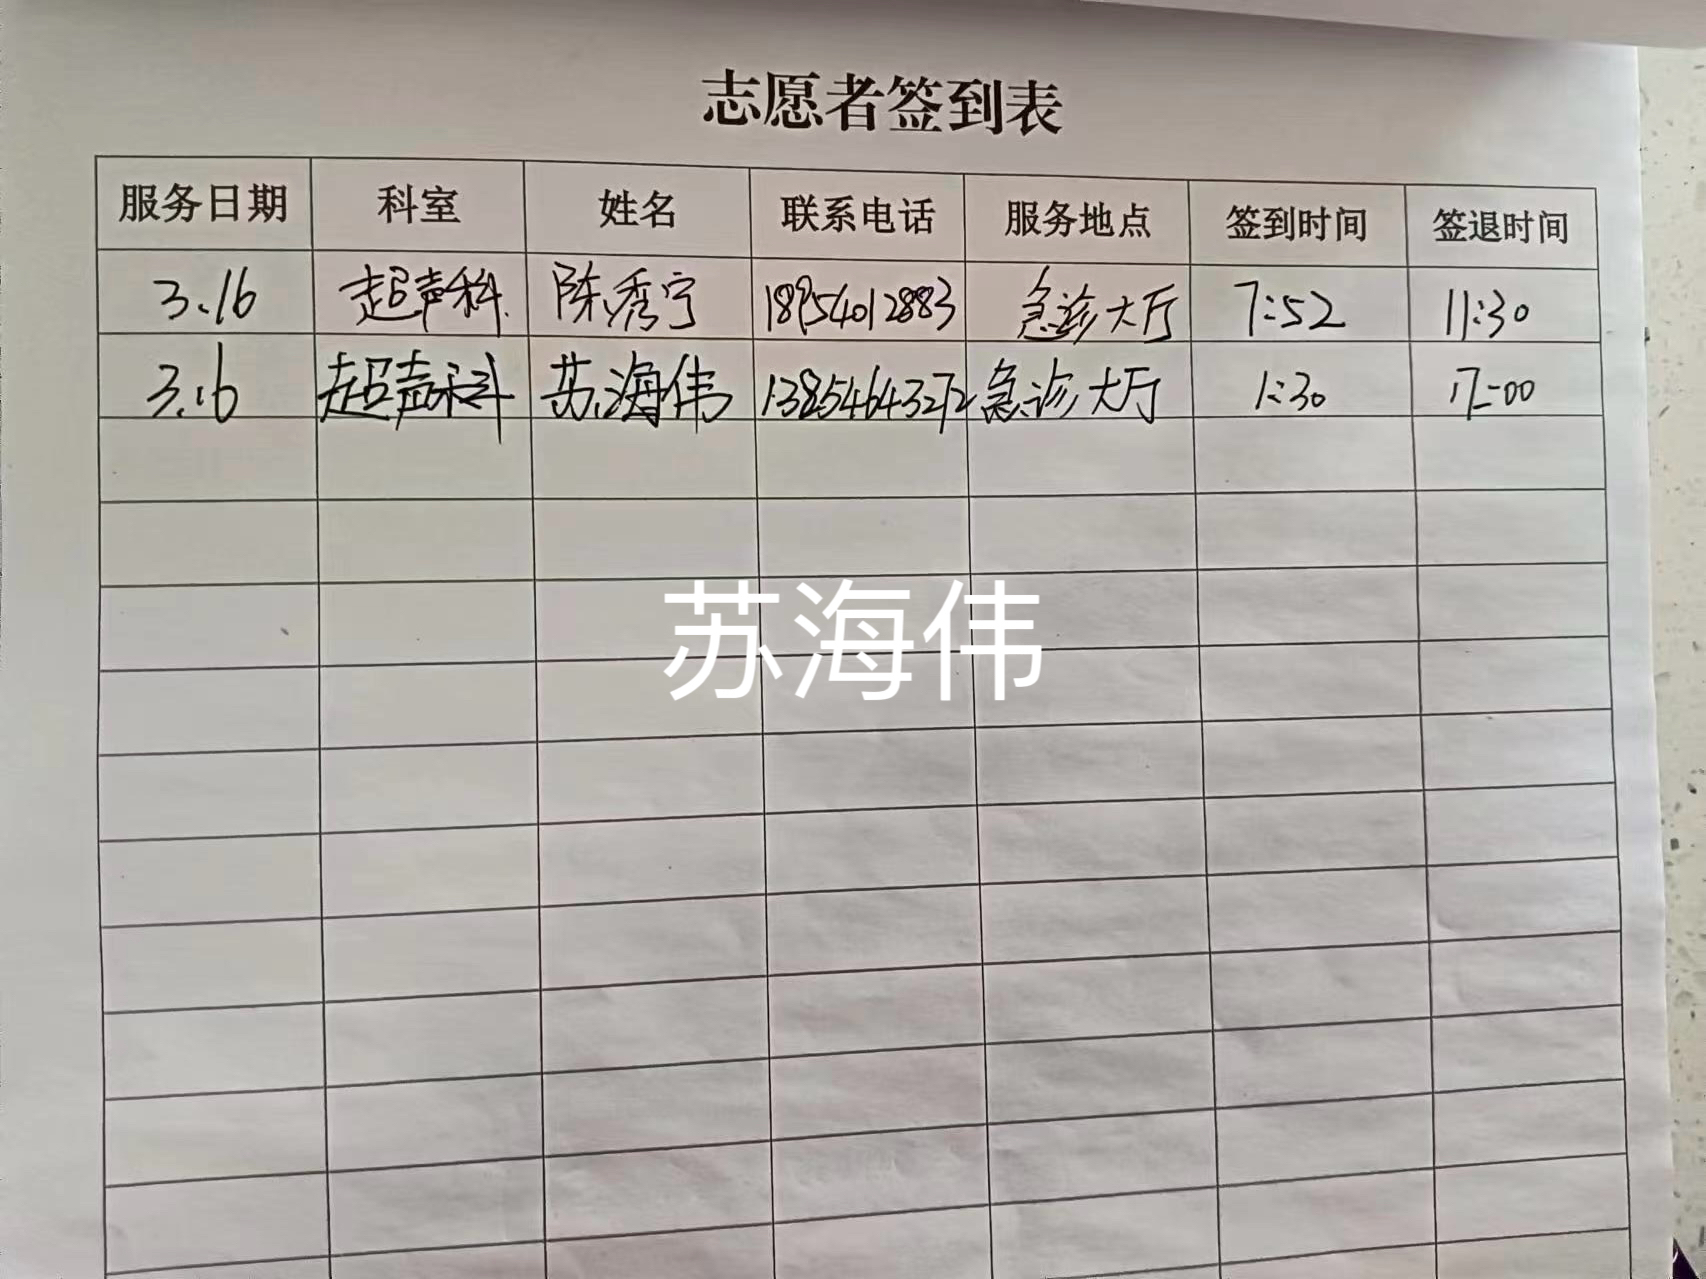 志愿者签到表
服务日期 科室 姓名 联系电话 服务地点 签到时间 签退时间
3.16 超声科 陈秀宁 18954012883 急诊大厅 7:52 11:30
3.16 超声科 苏海伟 13854643272 急诊大厅 1:30 17:00
苏海伟